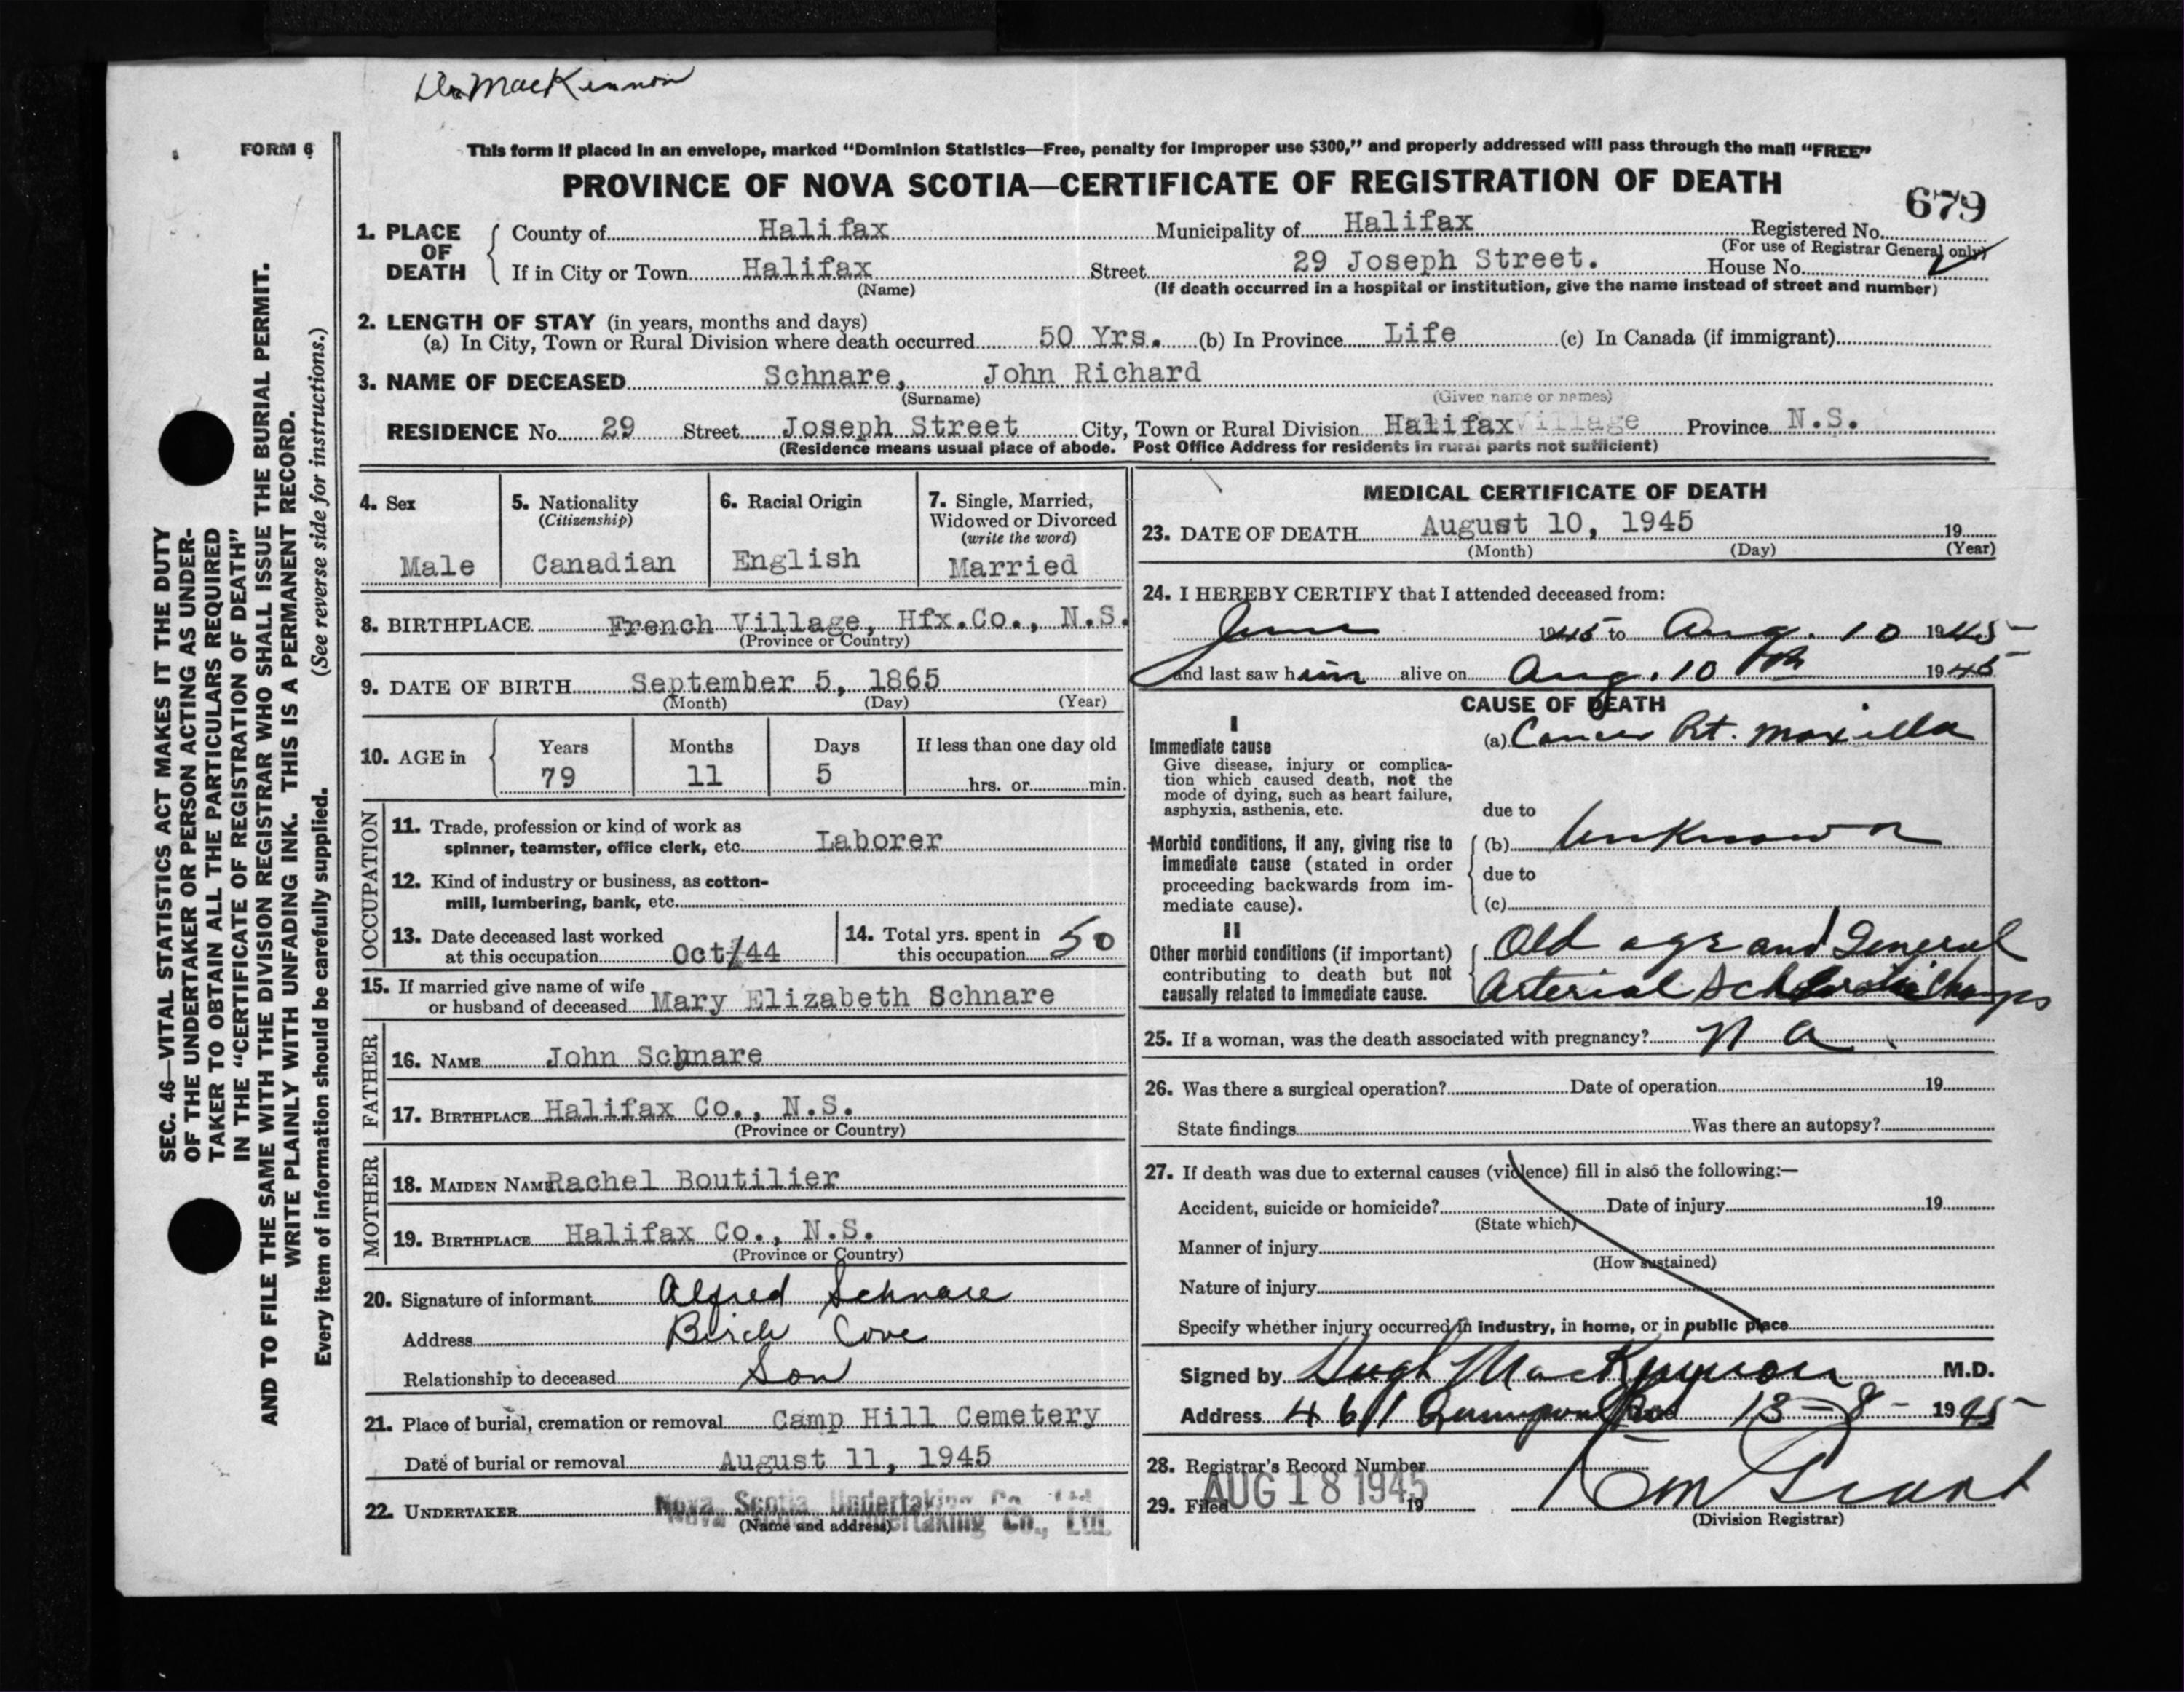 Dr. MacKinnon
FORM 6
This form if placed in an envelope, marked “Dominion Statistics—Free, penalty for improper use $300,” and properly addressed will pass through the mail “FREE”
PROVINCE OF NOVA SCOTIA—CERTIFICATE OF REGISTRATION OF DEATH
679
1. PLACE OF DEATH
County of Halifax Municipality of Halifax Registered No.
(For use of Registrar General only)
If in City or Town Halifax Street 29 Joseph Street. House No.
(Name) (If death occurred in a hospital or institution, give the name instead of street and number)
2. LENGTH OF STAY (in years, months and days)
(a) In City, Town or Rural Division where death occurred 50 Yrs. (b) In Province Life (c) In Canada (if immigrant)
3. NAME OF DECEASED Schnare, John Richard
(Surname) (Given name or names)
RESIDENCE No. 29 Street Joseph Street City, Town or Rural Division Halifax Village Province N.S.
(Residence means usual place of abode. Post Office Address for residents in rural parts not sufficient)
4. Sex
Male
5. Nationality
(Citizenship)
Canadian
6. Racial Origin
English
7. Single, Married,
Widowed or Divorced
(write the word)
Married
8. BIRTHPLACE French Village, Hfx.Co., N.S.
(Province or Country)
9. DATE OF BIRTH September 5, 1865
(Month) (Day) (Year)
10. AGE in
Years Months Days If less than one day old
79 11 5 hrs. or min.
OCCUPATION
11. Trade, profession or kind of work as
spinner, teamster, office clerk, etc. Laborer
12. Kind of industry or business, as cotton-
mill, lumbering, bank, etc.
13. Date deceased last worked
at this occupation Oct/44
14. Total yrs. spent in
this occupation 50
15. If married give name of wife
or husband of deceased Mary Elizabeth Schnare
FATHER
16. NAME John Schnare
17. BIRTHPLACE Halifax Co., N.S.
(Province or Country)
MOTHER
18. MAIDEN NAME Rachel Boutilier
19. BIRTHPLACE Halifax Co., N.S.
(Province or Country)
20. Signature of informant Alfred Schnare
Address Birch Cove
Relationship to deceased Son
21. Place of burial, cremation or removal Camp Hill Cemetery
Date of burial or removal August 11, 1945
22. UNDERTAKER Nova Scotia Undertaking Co., Ltd.
(Name and address)
MEDICAL CERTIFICATE OF DEATH
23. DATE OF DEATH August 10, 1945 19
(Month) (Day) (Year)
24. I HEREBY CERTIFY that I attended deceased from:
June 1945 to Aug. 10 1945
and last saw him alive on Aug. 10th 1945
CAUSE OF DEATH
I
Immediate cause
Give disease, injury or complica-
tion which caused death, not the
mode of dying, such as heart failure,
asphyxia, asthenia, etc.
(a) Cancer Rt. maxilla
due to
Morbid conditions, if any, giving rise to
immediate cause (stated in order
proceeding backwards from im-
mediate cause).
(b) Unknown
due to
(c)
II
Other morbid conditions (if important)
contributing to death but not
causally related to immediate cause.
Old age and General
Arterial Changes
25. If a woman, was the death associated with pregnancy? N a
26. Was there a surgical operation? Date of operation 19
State findings Was there an autopsy?
27. If death was due to external causes (violence) fill in also the following:—
Accident, suicide or homicide? Date of injury 19
(State which)
Manner of injury
(How sustained)
Nature of injury
Specify whether injury occurred in industry, in home, or in public place
Signed by Hugh MacKinnon M.D.
Address 461 13-8- 1945
28. Registrar's Record Number
29. Filed AUG 18 1945 19
Grant
(Division Registrar)
SEC. 46—VITAL STATISTICS ACT MAKES IT THE DUTY
OF THE UNDERTAKER OR PERSON ACTING AS UNDER-
TAKER TO OBTAIN ALL THE PARTICULARS REQUIRED
IN THE “CERTIFICATE OF REGISTRATION OF DEATH”
AND TO FILE THE SAME WITH THE DIVISION REGISTRAR WHO SHALL ISSUE THE BURIAL PERMIT.
WRITE PLAINLY WITH UNFADING INK. THIS IS A PERMANENT RECORD.
Every item of information should be carefully supplied. (See reverse side for instructions.)